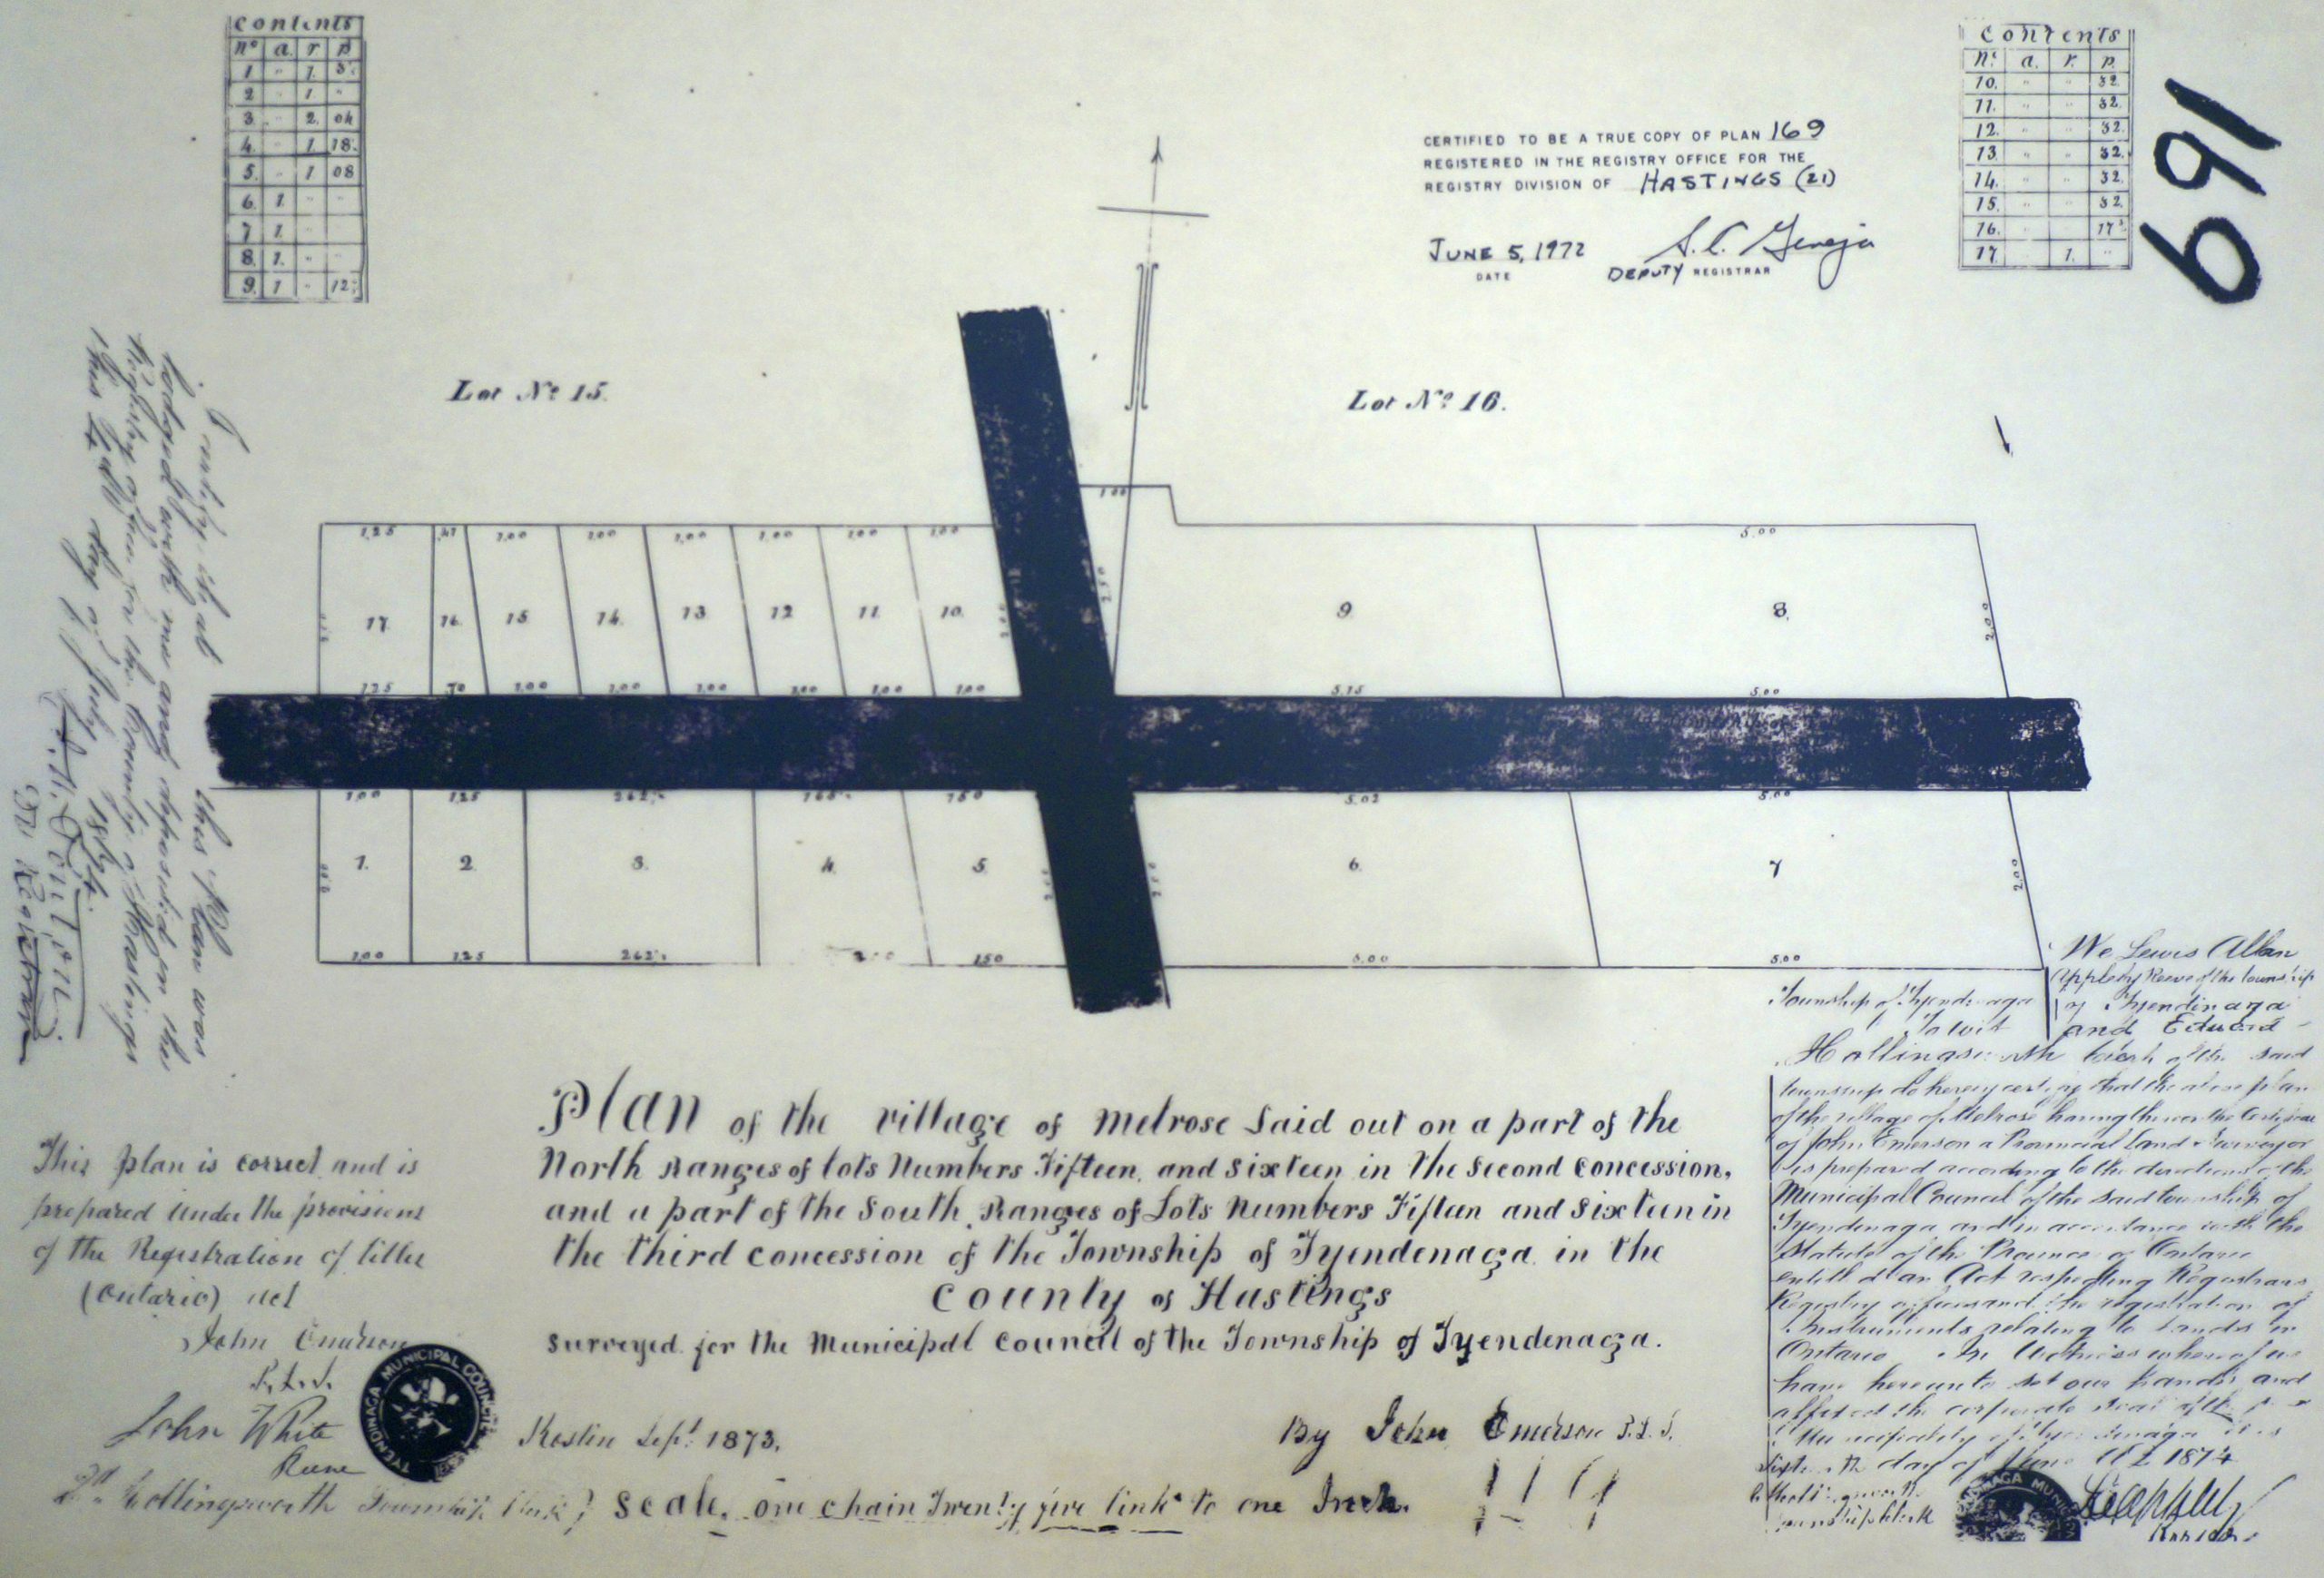 Contents
No a. r. p.
1 " 1. 3
2 " 1 "
3. " 2. 04
4. " 1. 18.
5. " 1 08
6. 1. " "
7 1. "
8. 1. " "
9. 1 " 12
Contents
No. a. r. p.
10. " " 32.
11. " " 32.
12. " " 32.
13. " " 32.
14. " " 32.
15. " " 32.
16. 17
17. 1. "
169
CERTIFIED TO BE A TRUE COPY OF PLAN 169
REGISTERED IN THE REGISTRY OFFICE FOR THE
REGISTRY DIVISION OF HASTINGS (21)
JUNE 5, 1972
DATE
DEPUTY REGISTRAR
Lot No. 15.
Lot No. 16.
1.00
1.25 .41 1.00 1.00 1.00 1.00 1.00 1.00
5.00
17. 16. 15 14. 13. 12 11. 10. 2.50
9 8. 2.00
1.25 70 1.00 1.00 1.00 1.00 1.00 1.00
5.15 5.00
1.00 1.25 262 165 150 5.02 5.00
1. 2 3. 4. 5 6. 7 2.00
1.00 1.25 262 150 5.00 5.00
I certify that this Plan was
lodged with me and deposited in the
Registry office for the County of Hastings
this day of July 1874.
Registrar
Plan of the village of Melrose Laid out on a part of the
North Ranges of lots Numbers Fifteen, and Sixteen in the Second Concession,
and a part of the South Ranges of Lots Numbers Fifteen and Sixteen in
the third Concession of the Township of Tyendenaga in the
County of Hastings
surveyed for the Municipal Council of the Township of Tyendenaga.
Roslin Sept. 1873.
By John Emerson P.L.S.
Scale, one chain Twenty five links to one Inch.
This plan is correct and is
prepared under the provisions
of the Registration of titles
(Ontario) act
John Emerson
P.L.S.
John White
Reeve
Hollingsworth Township Clerk
TYENDINAGA MUNICIPAL COUNCIL
Township of Tyendinaga
To wit
We Lewis Allan
Appleby Reeve of the township
of Tyendinaga
and Edward
Hollingsworth Clerk of the said
township do hereby certify that the above plan
of the village of Melrose having thereon the Certificate
of John Emerson a Provincial Land Surveyor
is prepared according to the directions of the
Municipal Council of the said township of
Tyendenaga and in accordance with the
Statute of the Province of Ontario
entitled an Act respecting Registrars
Registry offices and the registration of
Instruments relating to Lands in
Ontario. In Witness whereof we
have hereunto set our hands and
affixed the corporate seal of the
Municipality of Tyendinaga this
day of June A D 1874
Hollingsworth
Township Clerk
Reeve